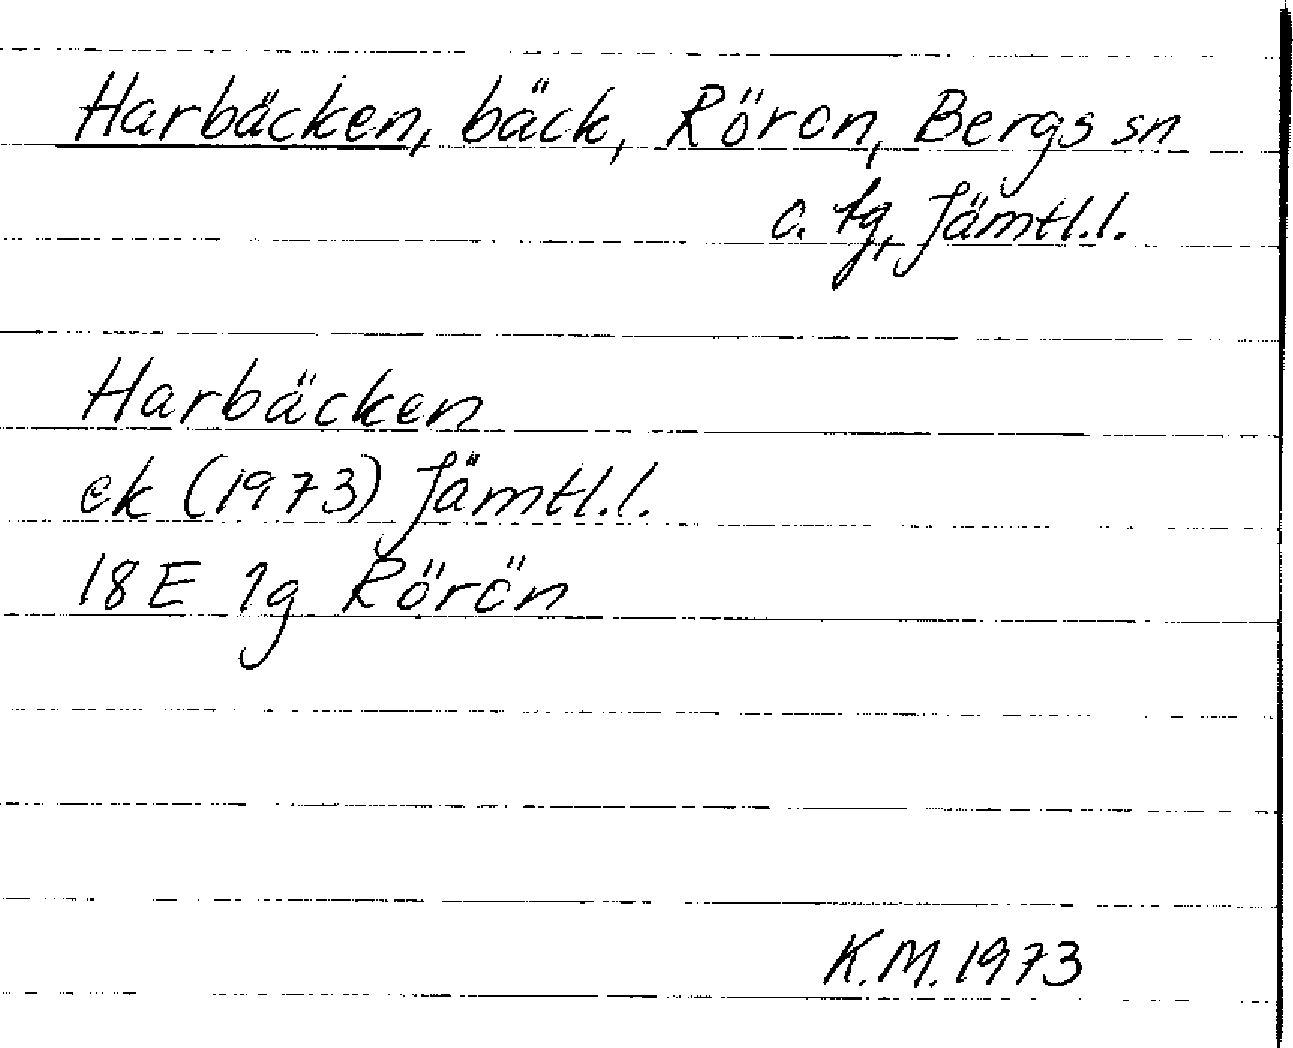 Harbäcken, bäck, Röron, Bergs sn
o. tg, Jämtl.l.
Harbäcken
ek (1973) Jämtl.l.
18E 1g Rörön
K.M. 1973